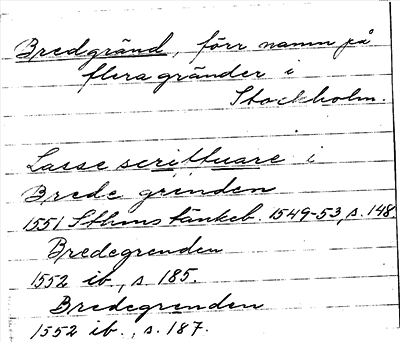 Bredgränd, förr namn på
flera gränder i
Stockholm.
Lasse scrittuare i
Brede grinden
1551 Sthms tänkeb. 1549-53, s. 148.
Bredegrenden
1552 ib., s. 185.
Bredegrenden
1552 ib., s. 187.